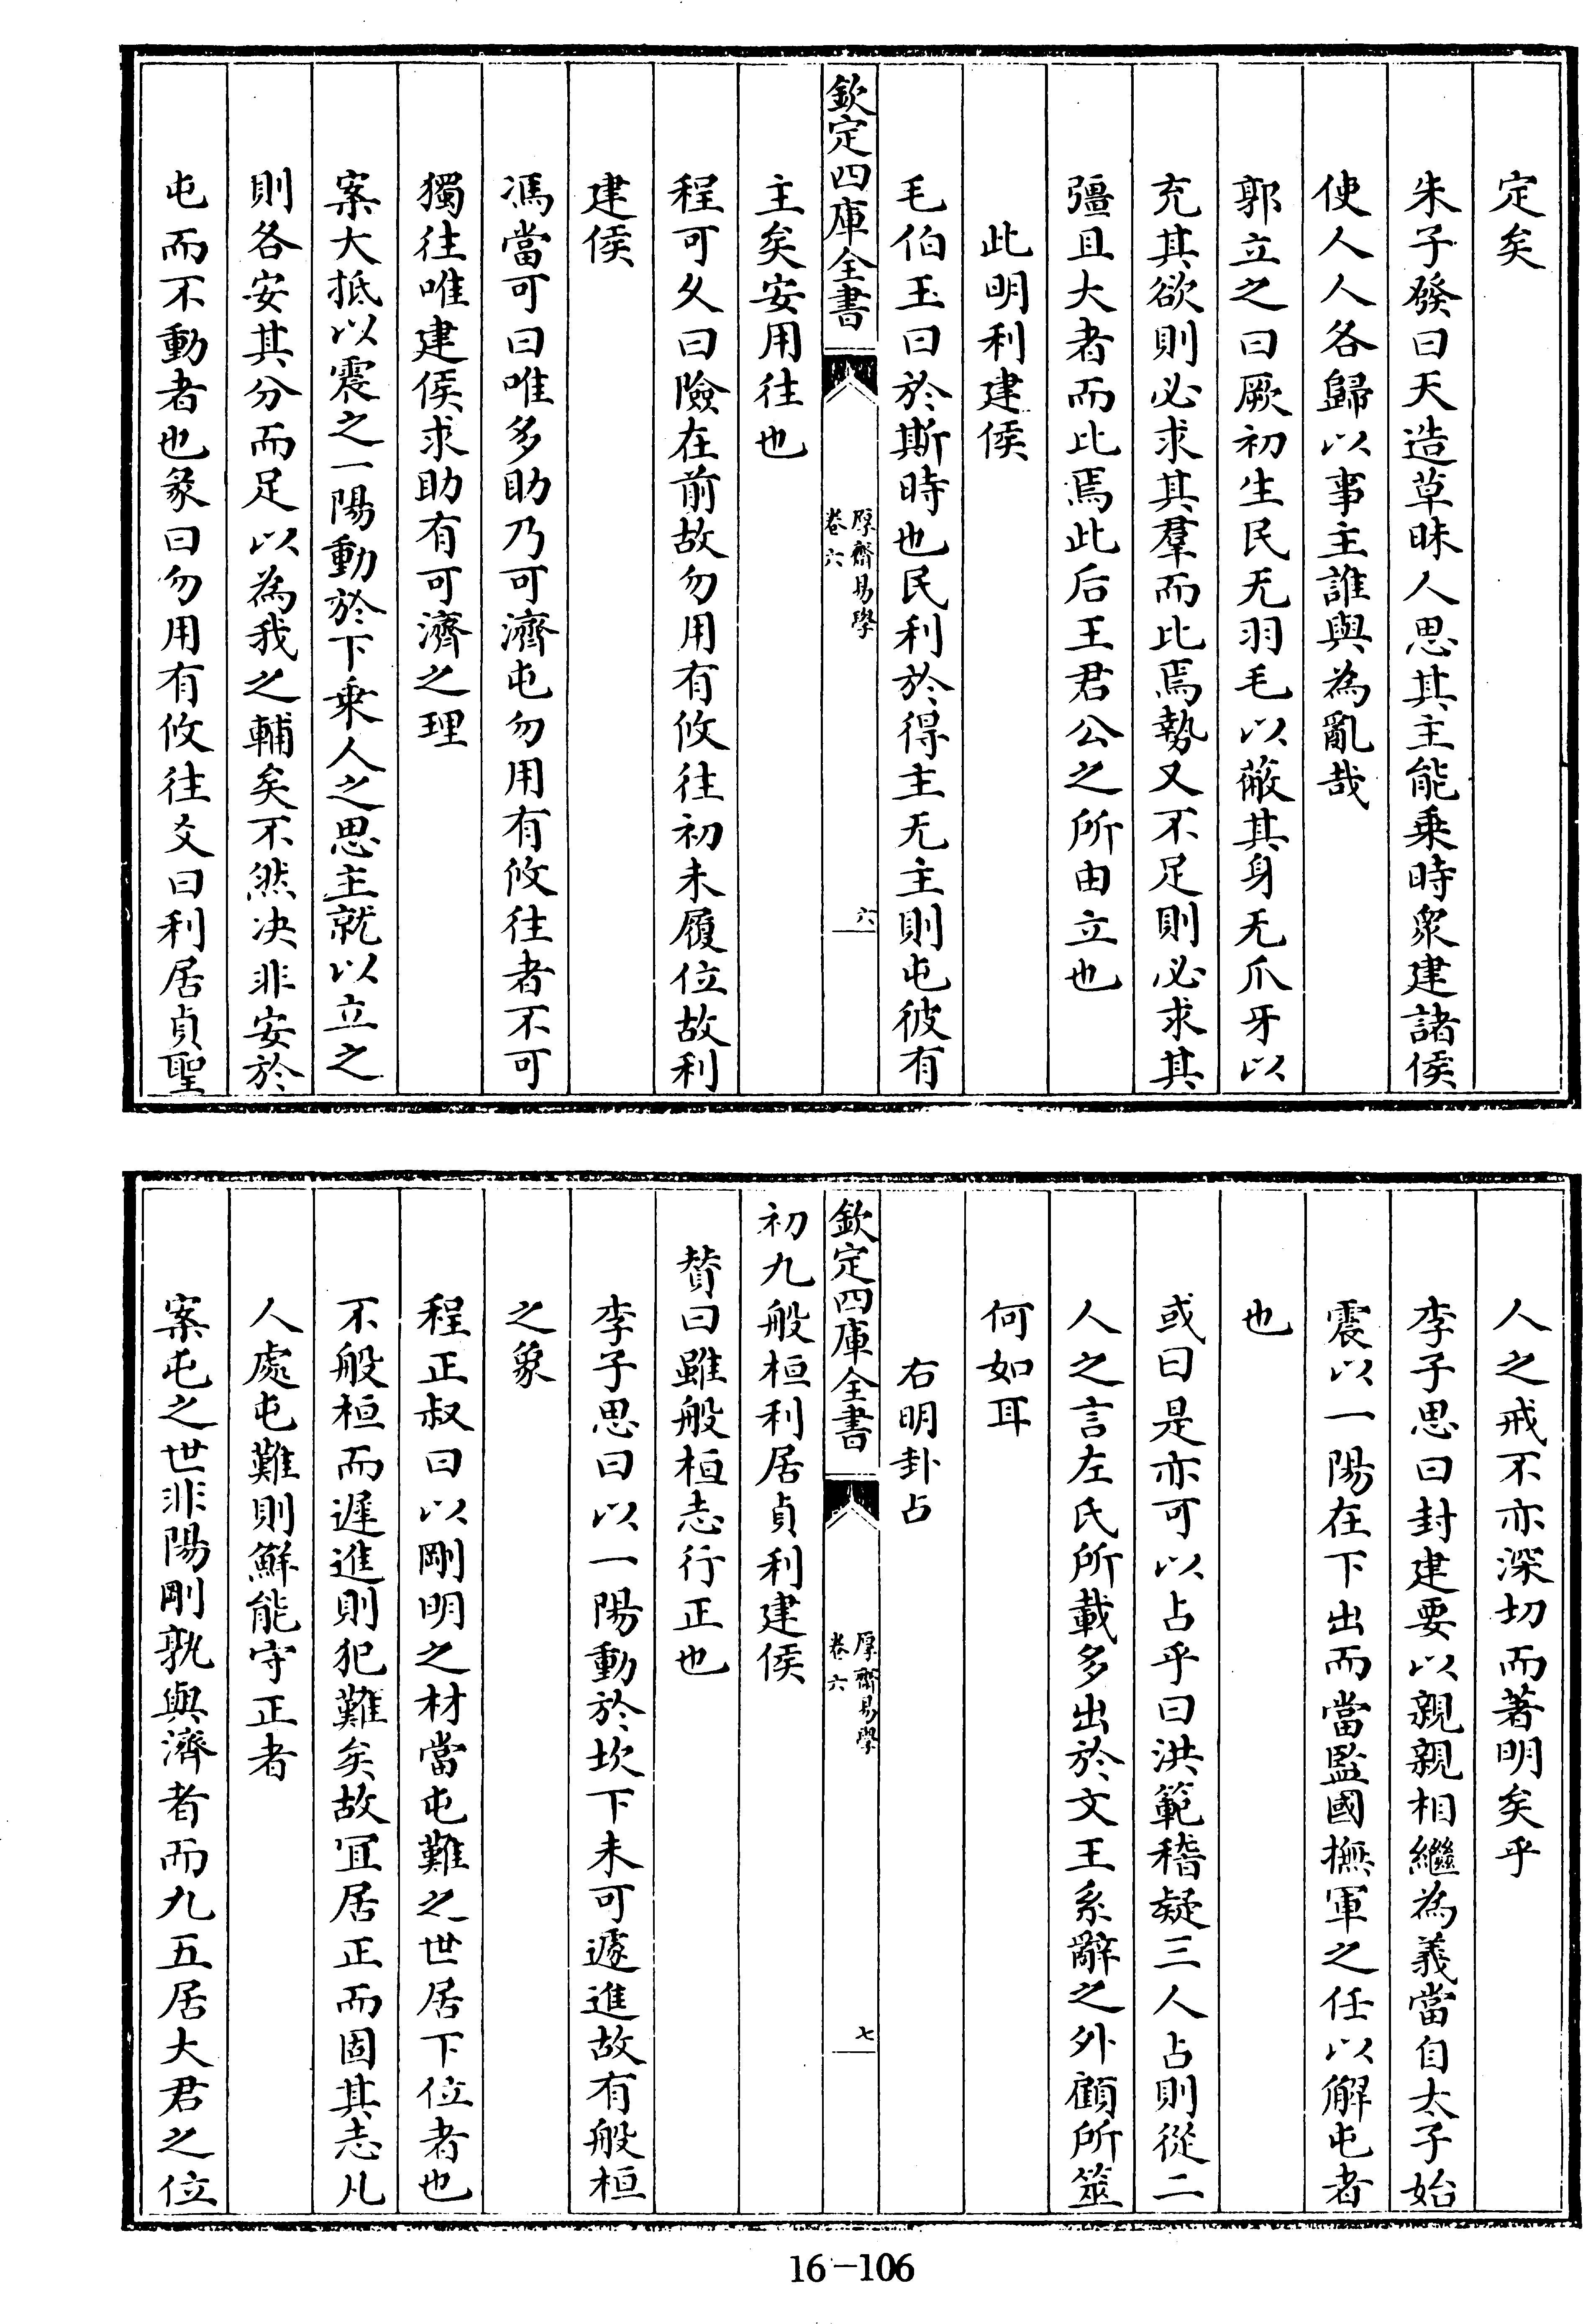 定矣
朱子發曰天造草昧人思其主能乗時衆建諸侯
使人人各歸以事主誰與為亂哉
郭立之曰厥初生民无羽毛以蔽其身无爪牙以
充其欲則必求其羣而比焉勢又不足則必求其
彊且大者而比焉此后王君公之所由立也
此明利建侯
毛伯玉曰於斯時也民利於得主无主則屯彼有
欽定四庫全書
厚齋易學
卷六
六
主矣安用往也
程可久曰險在前故勿用有攸往初未履位故利
建侯
馮當可曰唯多助乃可濟屯勿用有攸往者不可
獨往唯建侯求助有可濟之理
案大抵以震之一陽動於下乗人之思主就以立之
則各安其分而足以為我之輔矣不然决非安於
屯而不動者也彖曰勿用有攸往爻曰利居貞聖
人之戒不亦深切而著明矣乎
李子思曰封建要以親親相繼為義當自太子始
震以一陽在下出而當監國撫軍之任以解屯者
也
或曰是亦可以占乎曰洪範稽疑三人占則從二
人之言左氏所載多出於文王系辭之外顧所筮
何如耳
右明卦占
欽定四庫全書
厚齋易學
卷六
七
初九般桓利居貞利建侯
賛曰雖般桓志行正也
李子思曰以一陽動於坎下未可遽進故有般桓
之象
程正叔曰以剛明之材當屯難之世居下位者也
不般桓而遲進則犯難矣故冝居正而固其志凡
人處屯難則鮮能守正者
案屯之世非陽剛孰與濟者而九五居大君之位
16-106